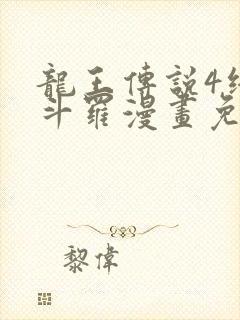 龍王傳說4終
斗羅漫畫免
黎偉